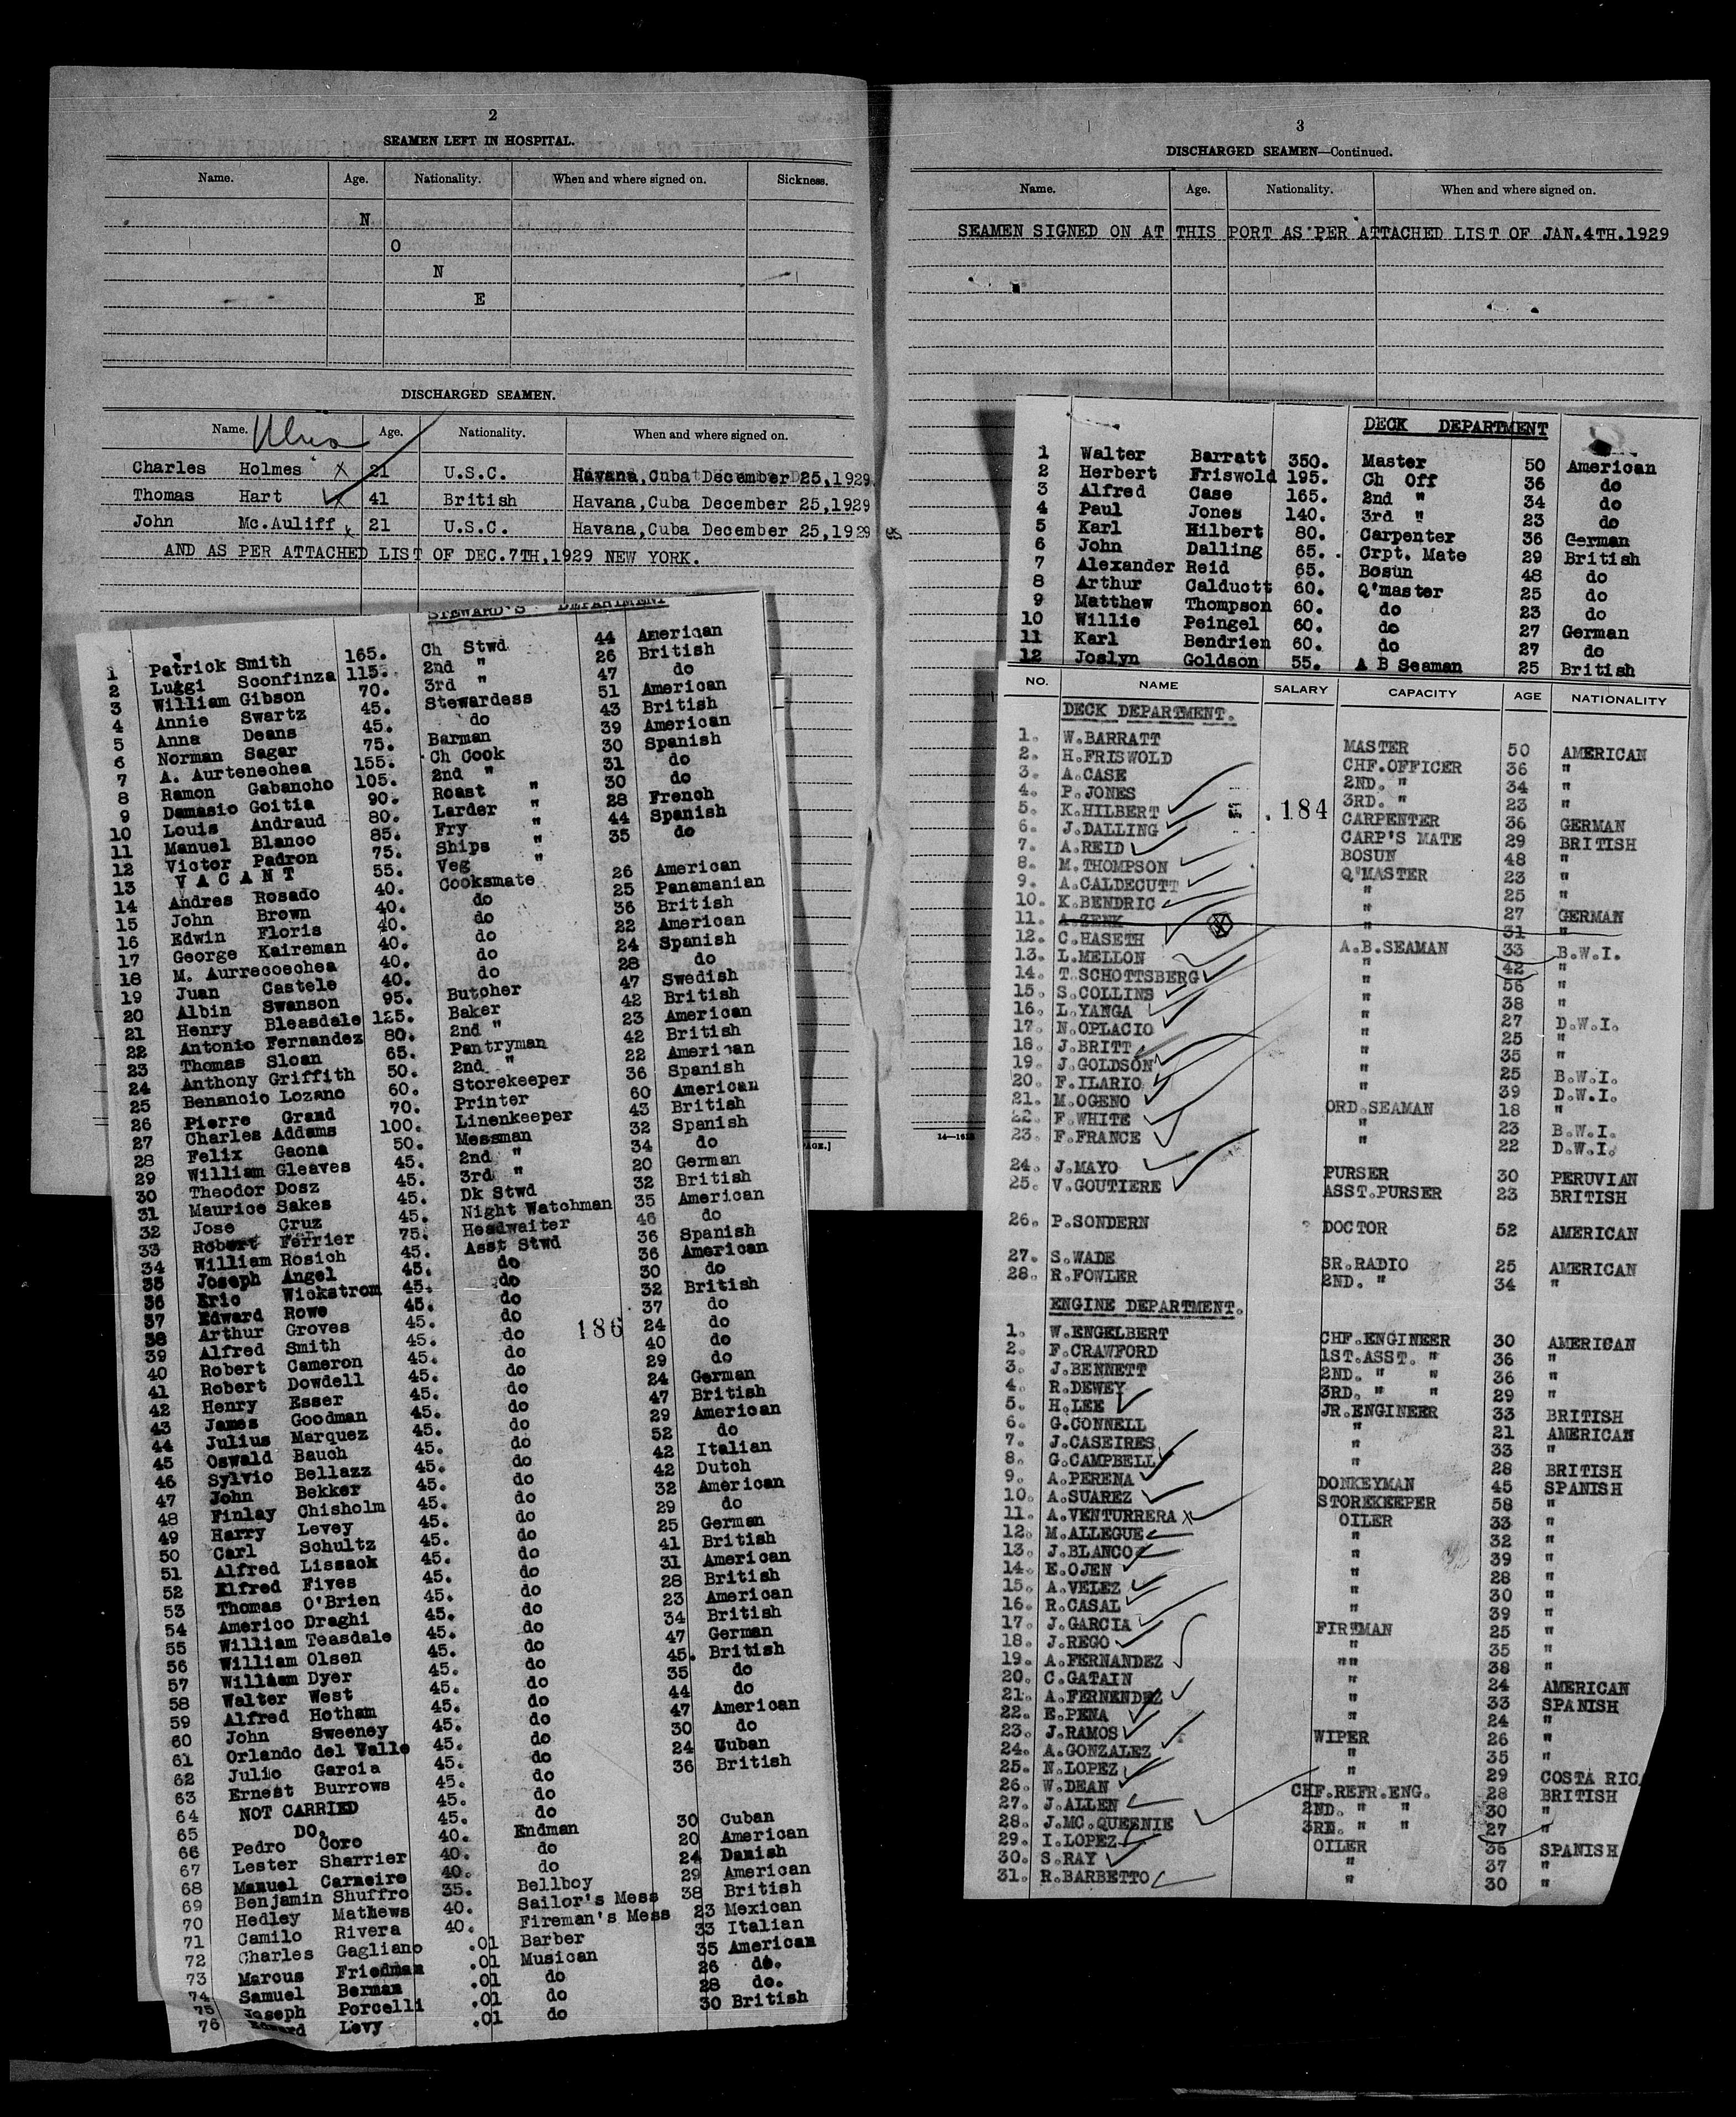 2
SEAMEN LEFT IN HOSPITAL.
Name. Age. Nationality. When and where signed on. Sickness.
N
O
N
E
DISCHARGED SEAMEN.
Name. Age. Nationality. When and where signed on.
Charles Holmes X 21 U.S.C. Havana,Cuba December 25,1929
Thomas Hart X 41 British Havana,Cuba December 25,1929
John Mc.Auliff x 21 U.S.C. Havana,Cuba December 25,1929
AND AS PER ATTACHED LIST OF DEC.7TH,1929 NEW YORK.
STEWARD'S DEPARTMENT
1 Patrick Smith 165. Ch Stwd 44 American
2 Luggi Sconfinza 115. 2nd " 26 British
3 William Gibson 70. 3rd " 47 do
4 Annie Swartz 45. Stewardess 51 American
5 Anna Deans 45. do 43 British
6 Norman Sagar 75. Barman 39 American
7 A. Aurtenechea 155. Ch Cook 30 Spanish
8 Ramon Gabancho 105. 2nd " 31 do
9 Damasio Goitia 90. Roast " 30 do
10 Louis Andraud 80. Larder " 28 French
11 Manuel Blanco 85. Fry " 44 Spanish
12 Victor Padron 75. Ships " 35 do
13 V A C A N T 55. Veg "
14 Andres Rosado 40. Cooksmate 26 American
15 John Brown 40. do 25 Panamanian
16 Edwin Floris 40. do 36 British
17 George Kaireman 40. do 22 American
18 M. Aurrecoechea 40. do 24 Spanish
19 Juan Castele 40. do 28 do
20 Albin Swanson 95. Butcher 47 Swedish
21 Henry Bleasdale 125. Baker 42 British
22 Antonio Fernandez 80. 2nd " 23 American
23 Thomas Sloan 65. Pantryman 42 British
24 Anthony Griffith 50. 2nd " 22 American
25 Benancio Lozano 60. Storekeeper 36 Spanish
26 Pierre Grand 70. Printer 60 American
27 Charles Addams 100. Linenkeeper 43 British
28 Felix Gaona 50. Messman 32 Spanish
29 William Gleaves 45. 2nd " 34 do
30 Theodor Dosz 45. 3rd " 20 German
31 Maurice Sakes 45. Dk Stwd 32 British
32 Jose Cruz 45. Night Watchman 35 American
33 Robert Ferrier 75. Headwaiter 46 do
34 William Rosich 45. Asst Stwd 36 Spanish
35 Joseph Angel 45. do 36 American
36 Eric Wickstrom 45. do 30 do
37 Edward Rowe 45. do 32 British
38 Arthur Groves 45. do 37 do
39 Alfred Smith 45. do 186 24 do
40 Robert Cameron 45. do 40 do
41 Robert Dowdell 45. do 29 do
42 Henry Esser 45. do 24 German
43 James Goodman 45. do 47 British
44 Julius Marquez 45. do 29 American
45 Oswald Bauch 45. do 52 do
46 Sylvio Bellazz 45. do 42 Italian
47 John Bekker 45. do 42 Dutch
48 Finlay Chisholm 45. do 32 American
49 Harry Levey 45. do 29 do
50 Carl Schultz 45. do 25 German
51 Alfred Lissack 45. do 41 British
52 Elfred Fives 45. do 31 American
53 Thomas O'Brien 45. do 28 British
54 Americo Draghi 45. do 23 American
55 William Teasdale 45. do 34 British
56 William Olsen 45. do 47 German
57 William Dyer 45. do 45. British
58 Walter West 45. do 35 do
59 Alfred Hotham 45. do 44 do
60 John Sweeney 45. do 47 American
61 Orlando del Valle 45. do 30 do
62 Julio Garcia 45. do 24 Cuban
63 Ernest Burrows 45. do 36 British
64 NOT CARRIED 45. do
65 DO. 45. do
66 Pedro Coro 40. Endman 30 Cuban
67 Lester Sharrier 40. do 20 American
68 Manuel Carneiro 40. do 24 Danish
69 Benjamin Shuffro 35. Bellboy 29 American
70 Hedley Mathews 40. Sailor's Mess 38 British
71 Camilo Rivera 40. Fireman's Mess 23 Mexican
72 Charles Gagliano .01 Barber 33 Italian
73 Marcus Friedman .01 Musican 35 American
74 Samuel Berman .01 do 26 do.
75 Joseph Porcelli .01 do 28 do.
76 Edward Levy .01 do 30 British
3
DISCHARGED SEAMEN—Continued.
Name. Age. Nationality. When and where signed on.
SEAMEN SIGNED ON AT THIS PORT AS PER ATTACHED LIST OF JAN.4TH.1929
DECK DEPARTMENT
1 Walter Barratt 350. Master 50 American
2 Herbert Friswold 195. Ch Off 36 do
3 Alfred Case 165. 2nd " 34 do
4 Paul Jones 140. 3rd " 23 do
5 Karl Hilbert 80. Carpenter 36 German
6 John Dalling 65. Crpt. Mate 29 British
7 Alexander Reid 65. Bosun 48 do
8 Arthur Calducott 60. Q'master 25 do
9 Matthew Thompson 60. do 23 do
10 Willie Peingel 60. do 27 German
11 Karl Bendrien 60. do 27 do
12 Joslyn Goldson 55. A B Seaman 25 British
NO. NAME SALARY CAPACITY AGE NATIONALITY
DECK DEPARTMENT.
1. W.BARRATT MASTER 50 AMERICAN
2. H.FRISWOLD CHF.OFFICER 36 "
3. A.CASE 2ND. " 34 "
4. P.JONES 3RD. " 23 "
5. K.HILBERT .184 CARPENTER 36 GERMAN
6. J.DALLING CARP'S MATE 29 BRITISH
7. A.REID BOSUN 48 "
8. M.THOMPSON Q'MASTER 23 "
9. A.CALDECUTT " 25 "
10. K.BENDRIC " 27 GERMAN
11. A.ZENK " 31 "
12. C.HASETH A.B.SEAMAN 33 B.W.I.
13. L.MELLON " 42 "
14. T.SCHOTTSBERG " 56 "
15. S.COLLINS " 38 "
16. L.YANGA " 27 D.W.I.
17. N.OPLACIO " 25 "
18. J.BRITT " 35 "
19. J.GOLDSON " 25 B.W.I.
20. F.ILARIO " 39 D.W.I.
21. M.OGENO ORD.SEAMAN 18 "
22. F.WHITE " 23 B.W.I.
23. F.FRANCE " 22 D.W.I.
24. J.MAYO PURSER 30 PERUVIAN
25. V.GOUTIERE ASST.PURSER 23 BRITISH
26. P.SONDERN DOCTOR 52 AMERICAN
27. S.WADE SR.RADIO 25 AMERICAN
28. R.FOWLER 2ND. " 34 "
ENGINE DEPARTMENT.
1. W.ENGELBERT CHF.ENGINEER 30 AMERICAN
2. F.CRAWFORD 1ST.ASST. " 36 "
3. J.BENNETT 2ND. " " 36 "
4. R.DEWEY 3RD. " " 29 "
5. H.LEE JR.ENGINEER 33 BRITISH
6. G.CONNELL " 21 AMERICAN
7. J.CASEIRES " 33 "
8. G.CAMPBELL " 28 BRITISH
9. A.PERENA DONKEYMAN 45 SPANISH
10. A.SUAREZ STOREKEEPER 58 "
11. A.VENTURRERA x OILER 33 "
12. M.ALLEGUE " 32 "
13. J.BLANCO " 39 "
14. E.OJEN " 28 "
15. A.VELEZ " 30 "
16. R.CASAL " 39 "
17. J.GARCIA FIREMAN 25 "
18. J.REGO " 35 "
19. A.FERNANDEZ "" 38 "
20. C.GATAIN " 24 AMERICAN
21. A.FERNENDEZ " 33 SPANISH
22. E.PENA " 24 "
23. J.RAMOS WIPER 26 "
24. A.GONZALEZ " 35 "
25. N.LOPEZ " 29 COSTA RIC
26. W.DEAN CHF.REFR.ENG. 28 BRITISH
27. J.ALLEN 2ND. " " 30 "
28. J.MC.QUEENIE 3RD. " " 27 "
29. I.LOPEZ OILER 36 SPANISH
30. S.RAY " 37 "
31. R.BARBETTO " 30 "